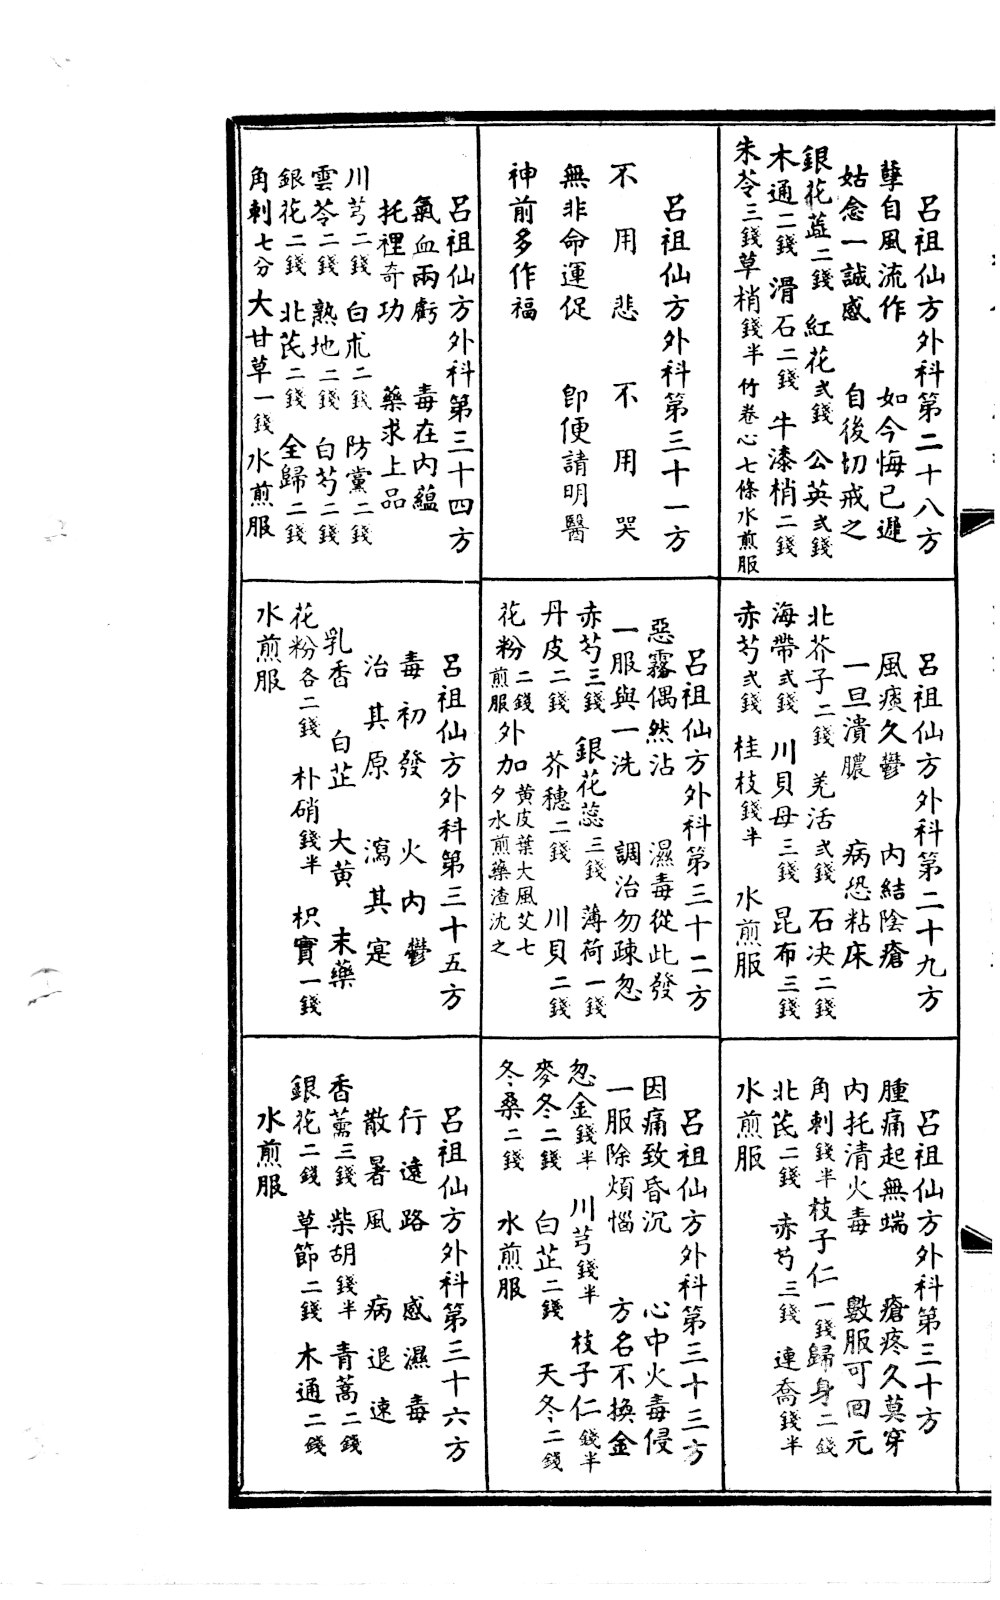 呂祖仙方外科第二十八方
孽自風流作　如今悔已遲
姑念一誠感　自後切戒之
銀花蕋二錢　紅花弍錢　公英弍錢
木通二錢　滑石二錢　牛漆梢二錢
朱苓三錢草梢錢半　竹卷心七條水煎服
呂祖仙方外科第二十九方
風痰久鬱　內結陰瘡
一旦潰膿　病恐粘床
北芥子二錢　羌活弍錢　石决二錢
海帶弍錢　川貝母三錢　昆布三錢
赤芍弍錢　桂枝錢半　水煎服
呂祖仙方外科第三十方
腫痛起無端　瘡疼久莫穿
內托清火毒　數服可回元
角刺錢半枝子仁一錢歸身二錢
北芪二錢　赤芍三錢　連喬錢半
水煎服
呂祖仙方外科第三十一方
不用悲　不用哭
無非命運促　即便請明醫
神前多作福
呂祖仙方外科第三十二方
惡霧偶然沾　濕毒從此發
一服與一洗　調治勿疎忽
赤芍三錢　銀花蕊三錢　薄荷一錢
丹皮二錢　芥穗二錢　川貝二錢
花粉二錢煎服外加黄皮葉大風艾七夕水煎藥渣沈之
呂祖仙方外科第三十三方
因痛致昏沉　心中火毒侵
一服除煩惱　方名不換金
忽金錢半　川芎錢半　枝子仁錢半
麥冬二錢　白芷二錢　天冬二錢
冬桑二錢　水煎服
呂祖仙方外科第三十四方
氣血兩虧　毒在內蘊
托裡奇功　藥求上品
川芎二錢　白朮二錢　防黨二錢
雲苓二錢　熟地二錢　白芍二錢
銀花二錢　北芪二錢　全歸二錢
角刺七分　大甘草一錢水煎服
呂祖仙方外科第三十五方
毒初發　火內鬱
治其原　瀉其寔
乳香　白芷　大黄　末藥
花粉各二錢　朴硝錢半　枳實一錢
水煎服
呂祖仙方外科第三十六方
行遠路　感濕毒
散暑風　病退速
香薷三錢　柴胡錢半　青蒿二錢
銀花二錢　草節二錢　木通二錢
水煎服